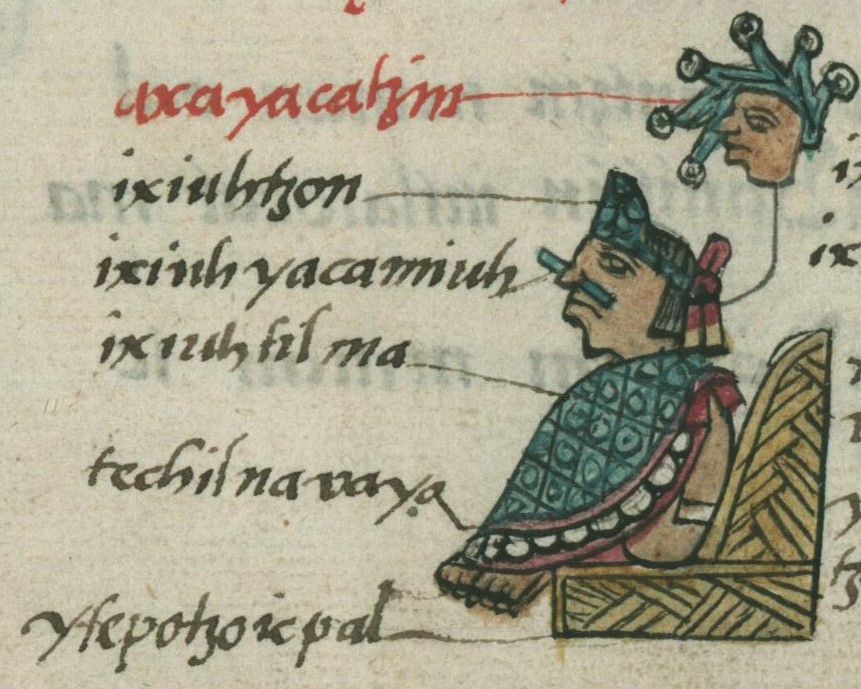 axayacatzin
ixiuhtzon
ixiuh yacamiuh
ixiuhtilma
techilnavayo
ytepotzoicpal